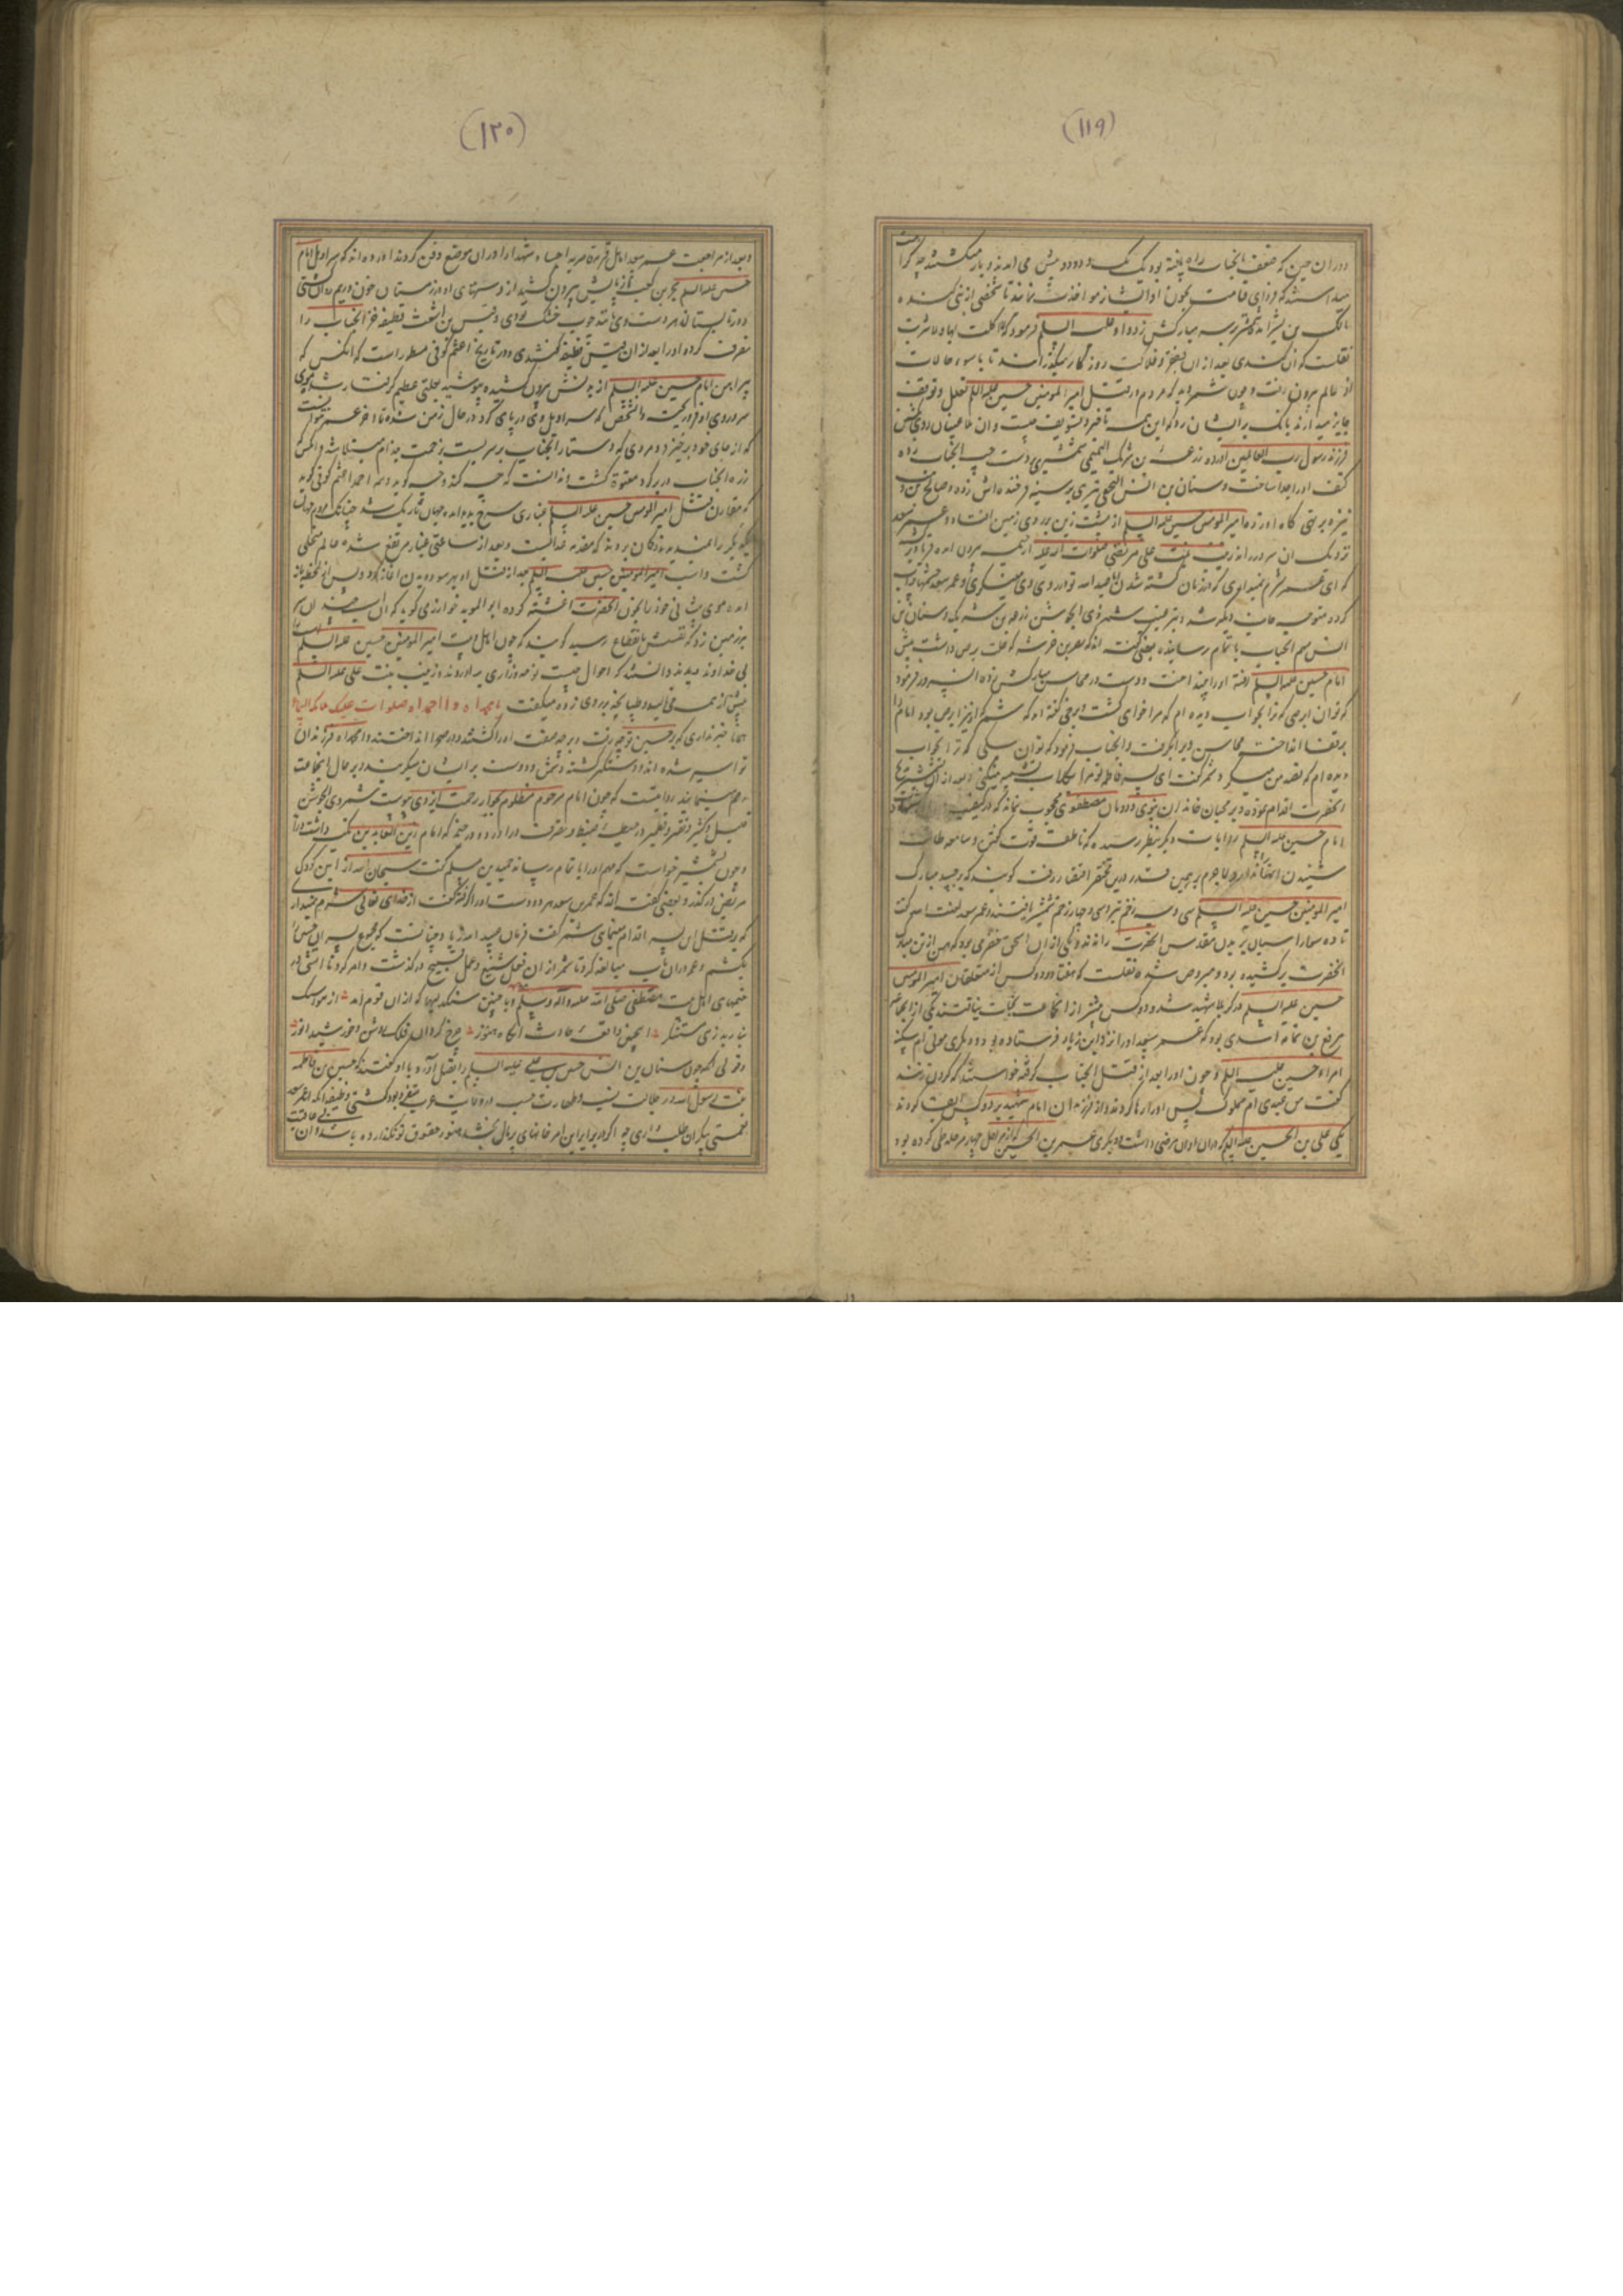 (۱۱۹)
دوران حین که ضعف بانجناب راه یافته بود یک یک و دو دو پیش می آمدند و باز میگشتند چه
میدانستند که فردای قیامت بخون او ایشان مواخذت نمایند تا شخصی از بنی کنده
مالک بن بشر آمده شمشیر بر سر مبارکش زد و او علیه السلم فرمود که لا اکلت بها ولا شربت
نقلست که آن کندی بعد از آن بفقر و فلاکت روزگار میگذرانید تا باسوء حالات
از عالم بیرون رفت و چون شمر دید که مردم در قتل امیر المومنین حسین علیه السلم تعلل و توقف
جایز میدارند بانک بر ایشان زد که این همه تاخیر و تسویف چیست و آن طاغیان روی
فرزند رسول رب العالمین آورده زرعة بن شریک التمیمی شمشیری بر دست چپ آنجناب زده
کتف او را جدا ساخت و سنان بن انس النخعی تیری بر سینه
نیزه بر تهی کاه او زده امیر المومنین حسین علیه السلم از پشت زین بر روی زمین افتاد و عمر سعد
نزدیک آن سرور راند زینب بنت علی مرتضی صلوات الله علیه از خیمه بیرون آمده فریاد برآورد
که ای عمر شرم نمیداری که در زمان کشته شدن ابا عبد الله تو در روی وی مینگری و عمر سعد
کرده متوجه جانب دیگر شد و بترغیب شمر ذی الجوشن
انس مهم آنجناب باتمام رسانیده بعضی گفته اند که نصر بن خرشه که علت برص داشت پیش
امام حسین علیه السلم رفته او را بینداخت و دست در محاسن مبارکش زده آن سرور فرمود
که تو آن ابرصی که ترا بخواب دیده ام
بر قفا انداخت محاسن ویرا بگرفت و آنجناب فرمود که تو آن سگی که ترا بخواب
دیده ام که قصد من میکرد و شمر گفت ای پسر فاطمه تو مرا بکلاب تشبیه میکنی و بعد از آن
آنحضرت اقدام نموده و بر محبان خاندان نبوی و دودمان مصطفوی محجوب نماند که در کیفیت
امام حسین علیه السلم روایات دیگر بنظر رسیده که ناطقه قوت گفتن و سامعه طاقت
شنیدن آنها ندارد لاجرم بر همین قدر درین مختصر اختصار رفت گویند که بر جسد مبارک
امیر المومنین حسین علیه السلم سی و سه زخم تیر و سی و چهار زخم شمشیر یافتند و عمر سعد
تا ده سوار اسبان بر بدن مقدس آنحضرت راندند و یکی از آن اسحق حضرمی بود که پیرهن از تن مبارک
آنحضرت برکشیده بود و مبروص شده نقلست که هفتاد و دو کس از متعلقان امیر المومنین
حسین علیه السلم در کربلا شهید شد و دو کس بیشتر از آنجماعت نجات نیافتند یکی از آنجمله
مرقع بن ثمامه اسدی بود که عمر سعد او را نزد ابن زیاد فرستاده بود و دیگری مولی ام سکینه
امراة حسین علیه السلم و چون او را بعد از قتل آنجناب گرفته خواستند که گردن زنند
گفت من عبدی ام مملوک پس او را رها کردند و از فرزندان امام شهید بر دو کس ابقا کردند
یکی علی بن الحسین علیه السلم که در آن اوان مرضی داشت و دیگری عمر بن الحسین که از مراحل چهار مرحله طی کرده بود

(۱۲۰)
و بعد از مراجعت عمر سعد اهل قریه غاضریه اجساد شهدا را در آن موضع دفن کردند آورده اند که سراویل امام
حسین علیه السلم بحر بن کعب از پایش بیرون کشید از دستهای او در زمستان خون و ریم
و در تابستان هر دو دست وی مانند چوب خشک بودی و قیس بن اشعث قطیفه خز آنجناب را
تصرف کرده او را بعد از آن قیس قطیفه گفتندی و در تاریخ اعثم کوفی مسطور است که آنکس که
پیراهن امام حسین علیه السلم از بدنش بیرون کشیده پوشید بعلتی عظیم گرفتار شد
سر و روی او فرو ریخت و آن شخص که سراویل وی در پای کرد در حال زمن شد و تا آخر عمر نتوانست
که از جای خود برخیزد و مردی که دستار آنجناب بر سر بست بزحمت جذام مبتلا شد و آنکس
زره آنجناب در بر کرد معتوه گشت و ندانست که چه کند و چه گوید و احمد اعثم کوفی گوید
که مقارن قتل امیر المومنین حسین علیه السلم غباری سرخ پدید آمد و جهان تاریک شد چنانکه مردم
یکدیگر را نمیدیدند گمان بردند که مقدمه عذابست و بعد از ساعتی غبار مرتفع شده عالم متجلی
گشت و اسب امیر المومنین حسین علیه السلم بعد از قتل او بهر سو دویدن آغاز کرد و پس از لحظه باز
آمده موی پیشانی خود را بخون آنحضرت آغشته کرده ابو المؤید خوارزمی گوید که آن اسب چندان سر
بر زمین زد که نفسش بانقطاع رسید گویند که چون اهل بیت امیر المومنین حسین علیه السلم
بی خداوند دیدند دانستند که احوال چیست نوحه و زاری برآوردند و زینب بنت علی علیه السلم
پیش از همه می نالید و طپانچه بر روی زده میگفت یا محمداه وا احمداه صلوات علیک ملیکة السماء
هیچ خبر نداری که بر حسین تو چه رفت و بر چه صفت او را کشتند و در صحرا انداختند وا محمداه فرزندان
تو اسیر شده اند و دستگیر گشته دشمن و دوست بر ایشان میگریند و بر حال آنجماعت
رحم مینمایند روایتست که چون امام مرحوم مظلوم بجوار رحمت ایزدی پیوست شمر ذی الجوشن
قلیل و کثیر و نقیر و قطمیر در حیطه ضبط و تصرف درآورده در خیمه که امام زین العابدین تکیه داشت درآمد
و چون شمشیر خواست که مهم او را باتمام رساند حمید بن مسلم گفت سبحان الله از این کودک
مریض درگذر و بعضی گفته اند که عمر بن سعد هر دو دست او را گرفته گفت از خدای تعالی شرم نمیداری
که بر قتل این پسر اقدام مینمائی شمر گفت فرمان عبید الله زیاد چنانست که مجموع پسران حسین را
بکشم و عمر در آن باب مبالغه کرد تا شمر از آن فعل شنیع و عمل قبیح درگذشت و امر کرد تا آتش در
خیمهای اهل بیت مصطفی صلی الله علیه وآله وسلم زدند
و قولی آنکه چون سنان بن انس حسین بن علی علیه السلم را بقتل آورد با او گفتند که حسین بن فاطمه
بنت رسول الله در جلالت نسب و طهارت حسب
نعمتی بیکران طلب داری چه اگر در برابر این امر خانهای پر مال بخشد هنوز حقوق تو نگذارده باشد و آن بی عاقبت